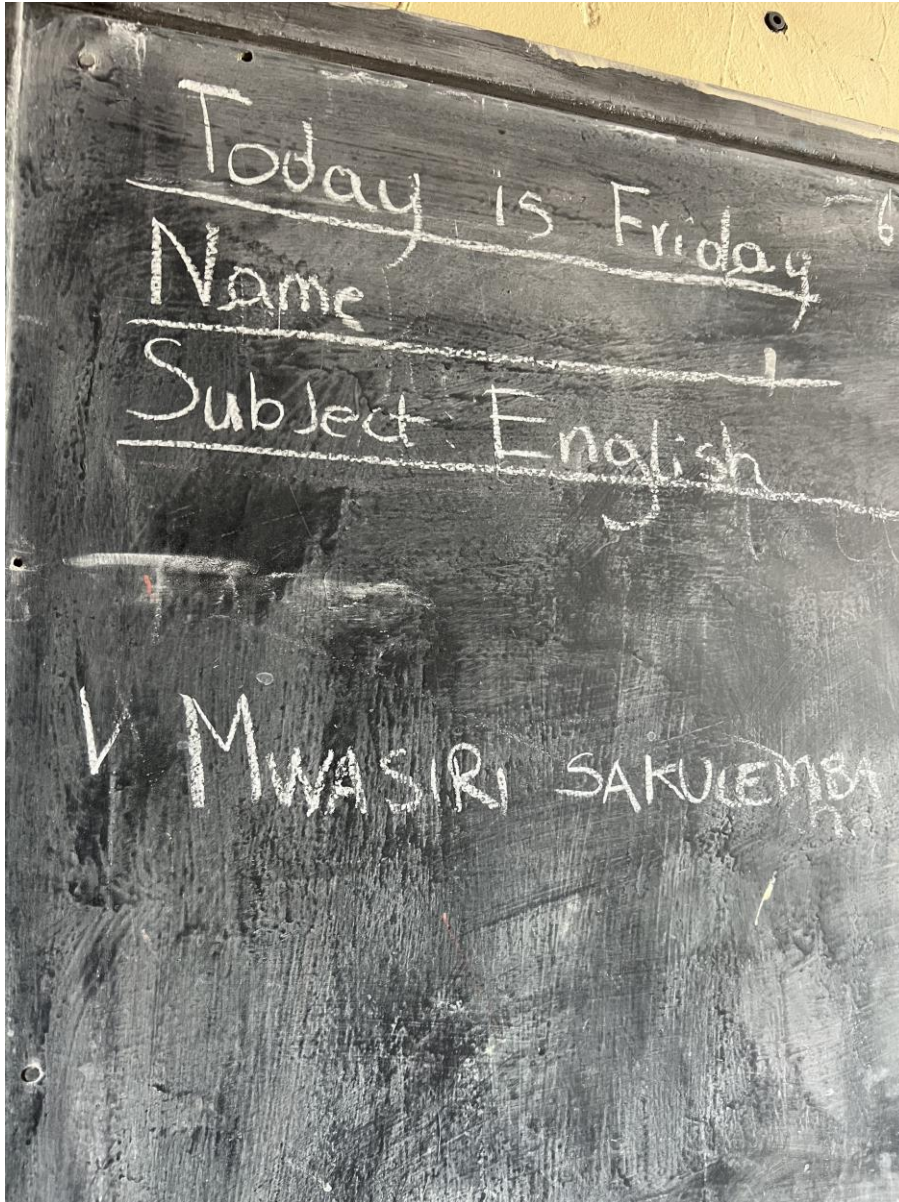 Today is Friday 6
Name
Subject: English
V MWASIRI SAKULEMBA